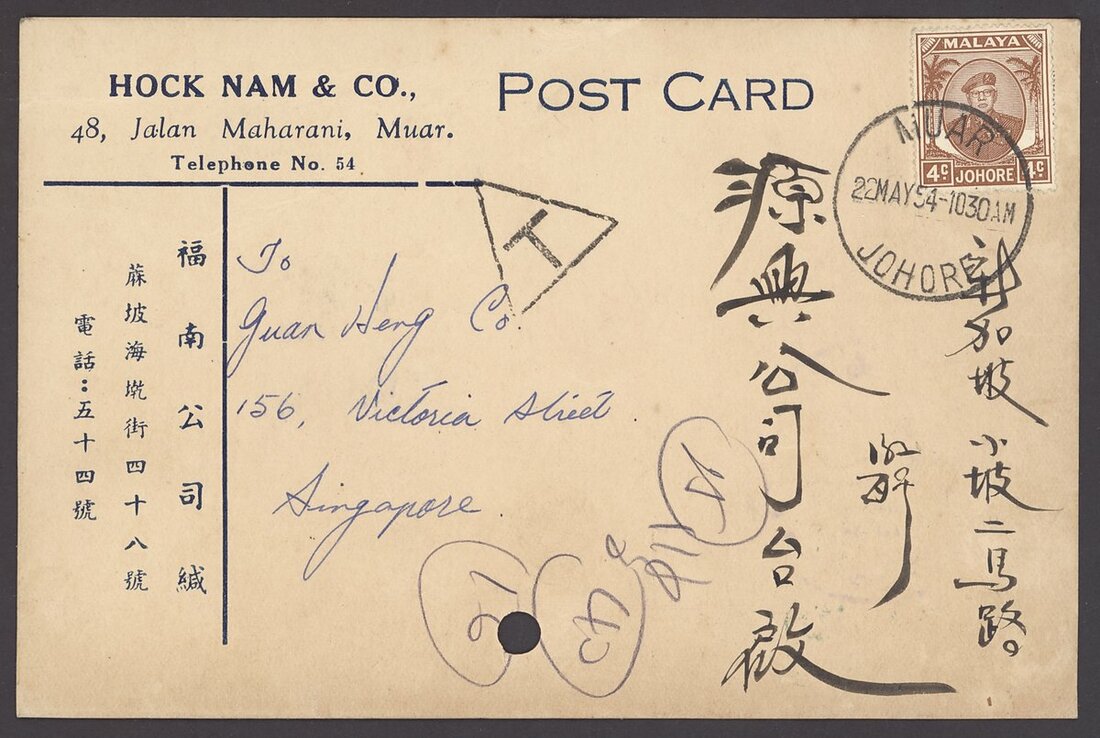 HOCK NAM & CO.,
48, Jalan Maharani, Muar.
Telephone No. 54
POST CARD
MALAYA
4c JOHORE 4c
MUAR
22MAY54-1030AM
JOHORE
T
福南公司緘
蔴坡海墘街四十八號
電話：五十四號
To
Guan Heng Co.
156, Victoria Street
Singapore
小坡二馬路。
源興公司台啟